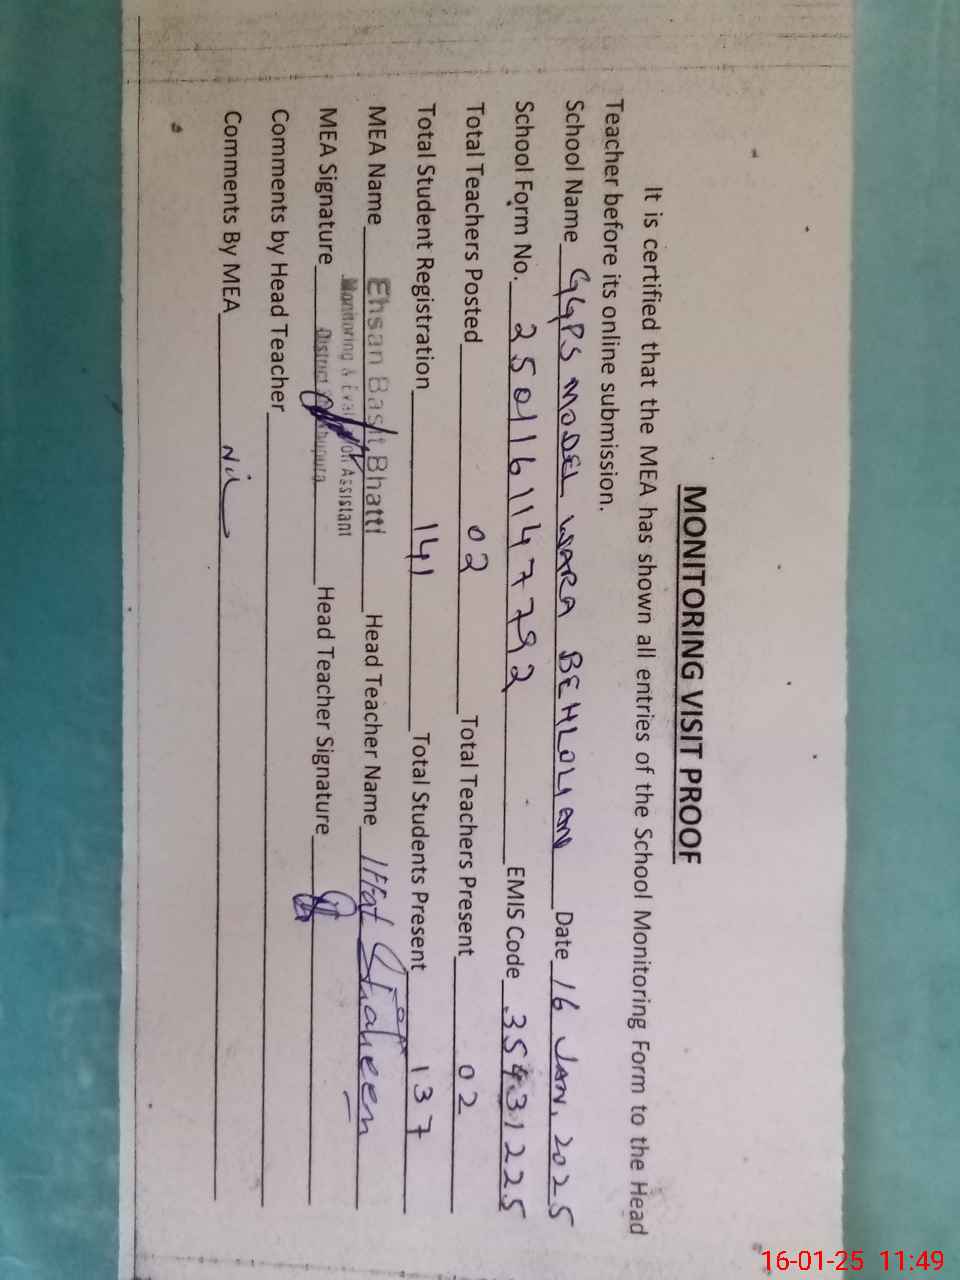 MONITORING VISIT PROOF
It is certified that the MEA has shown all entries of the School Monitoring Form to the Head
Teacher before its online submission.
School Name GGPS MODEL WARA BEHLOLIAN Date 16 JAN, 2025
School Form No. 2501161147792 EMIS Code 35431225
Total Teachers Posted 02 Total Teachers Present 02
Total Student Registration 141 Total Students Present 137
MEA Name Ehsan Basit Bhatti Head Teacher Name Iffat Shaheen
Monitoring & Evaluation Assistant
MEA Signature District Head Teacher Signature
Comments by Head Teacher
Comments By MEA Nil
16-01-25 11:49